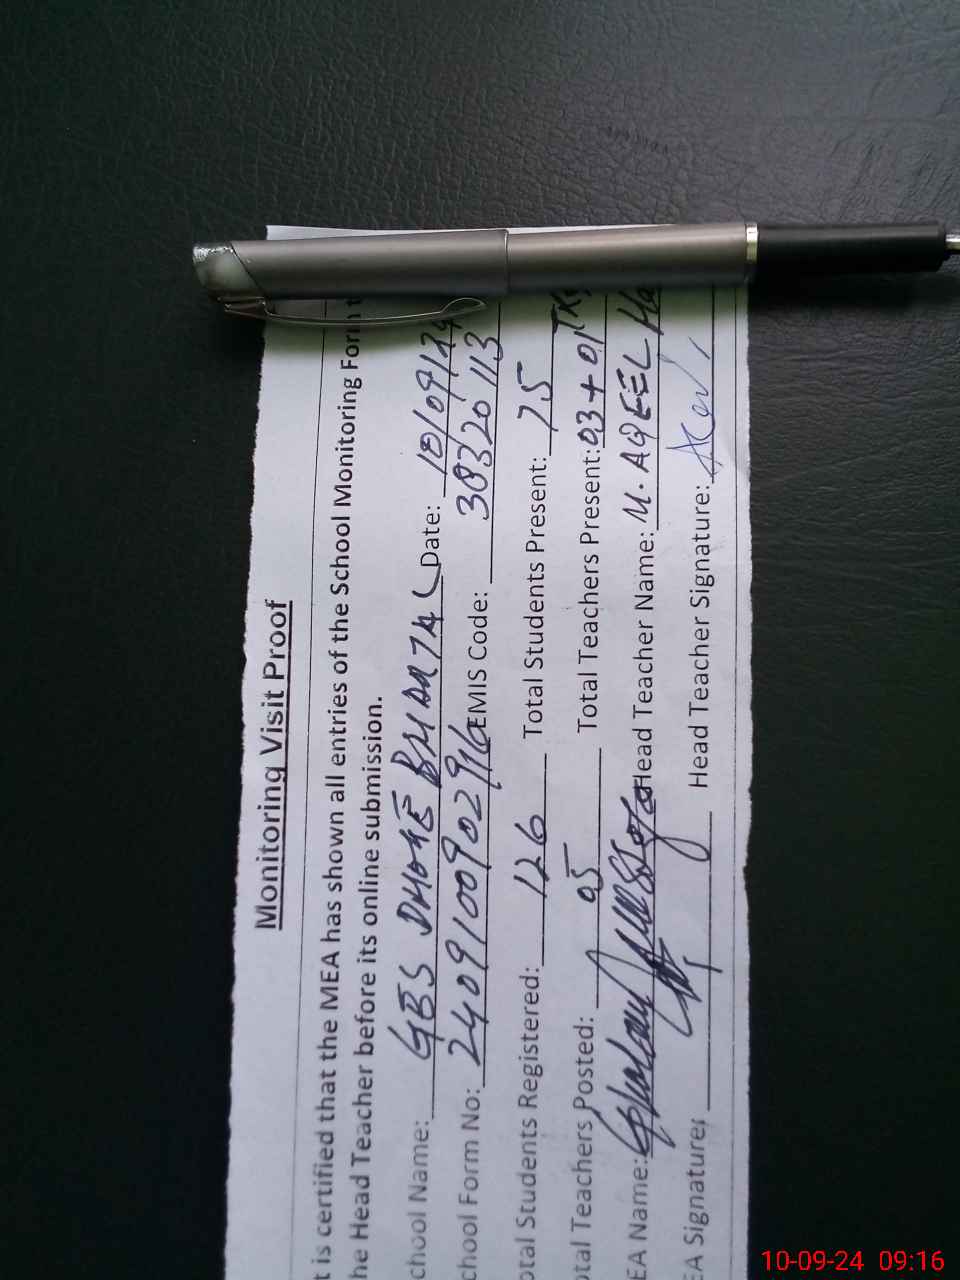 Monitoring Visit Proof
t is certified that the MEA has shown all entries of the School Monitoring Form t
he Head Teacher before its online submission.
chool Name: GBS DHOKE BHARTAL Date: 10/09/24
chool Form No: 2409100902916 EMIS Code: 38320113
otal Students Registered: 126 Total Students Present: 75
otal Teachers Posted: 05 Total Teachers Present: 03+01
EA Name: Head Teacher Name: M. AQEEL
EA Signature: Head Teacher Signature:
10-09-24 09:16